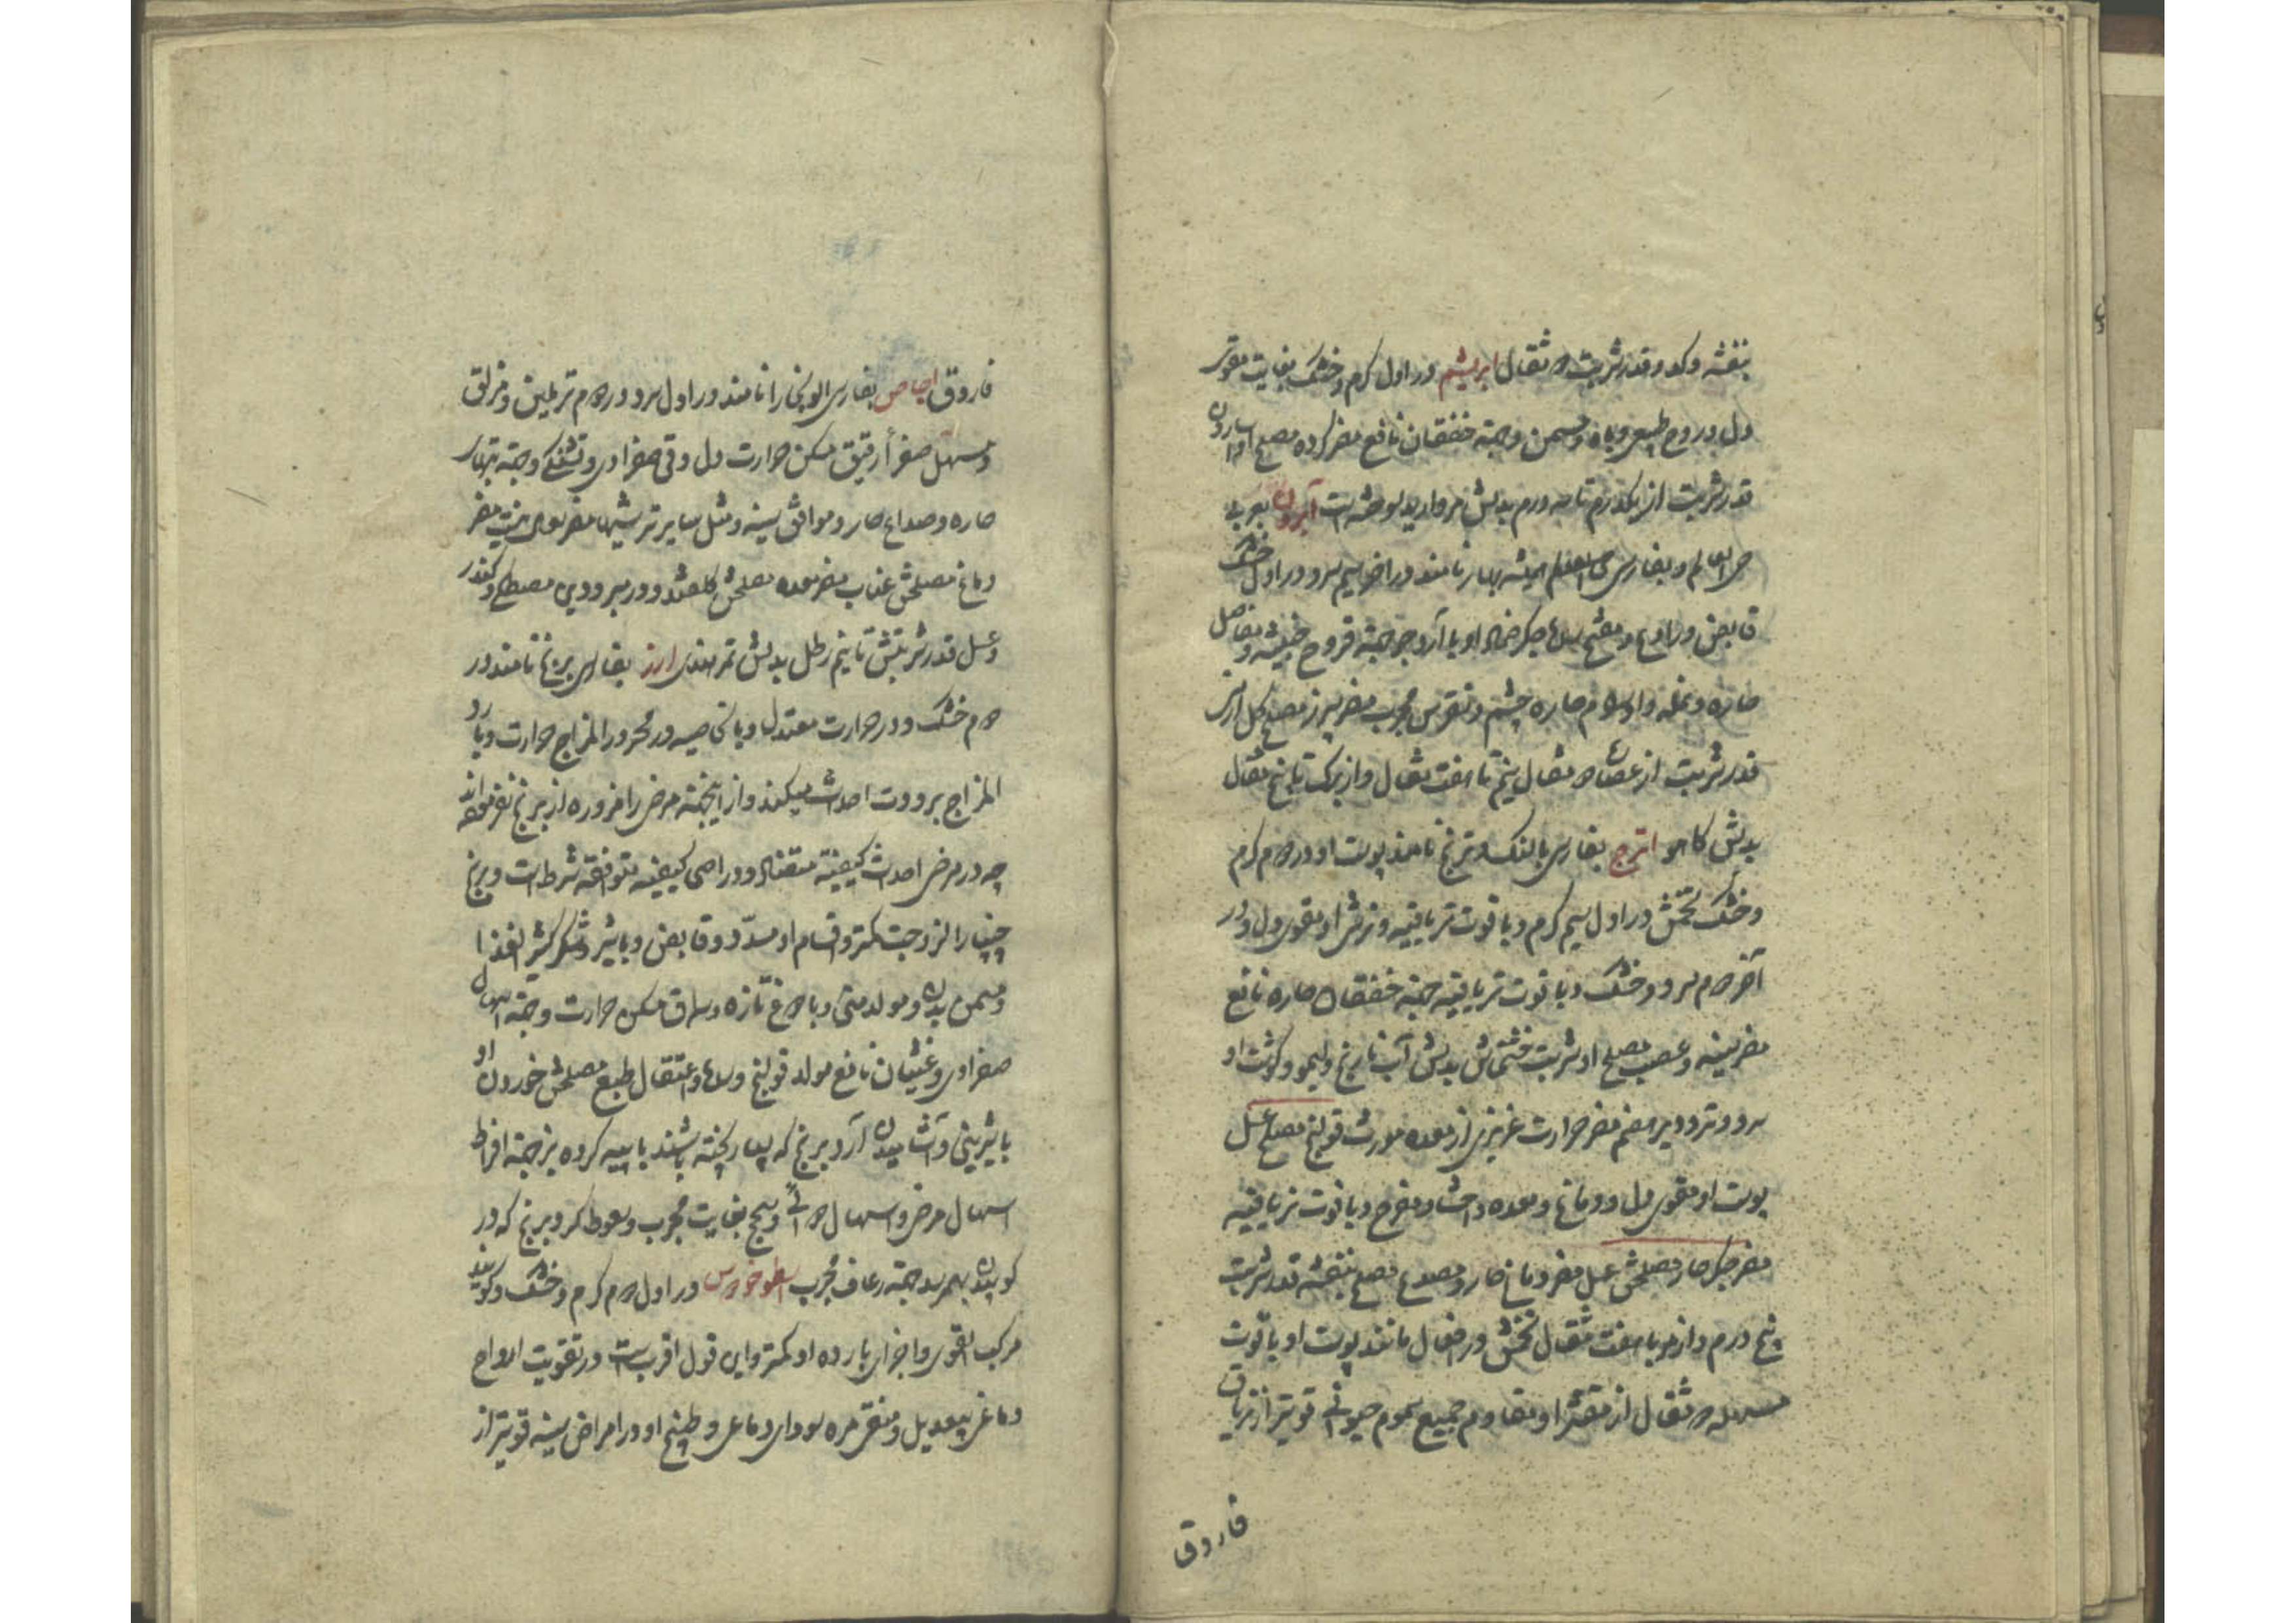 بنفشه و کدو و قدر شربت دو مثقال ابریشم در اول گرم و خشک بغایت مقوی
دل و روح طبیعی و باه و مسمن و جهة خفقان نافع مضر گرده مصلح او اسارون
قدر شربت از یکدرم تا سه درم بدلش مروارید سوخته است آبرون بعربی
حی العالم و بفارسی همیشه بهار نامند در آخر سیم سرد و در اول خشک
قابض و رادع و مفتح سدهای جگر ضماد او با آرد جو جهة قروح خبیثه و مفاصل
حاره و نمله و اورام حاره چشم و نقرس مجرب مضر سپرز مصلح گل ارمنی
قدر شربت از عصاره مثقال نیم تا هفت مثقال و از برک تا پنج مثقال
بدلش کاهو اترج بفارسی بالنک و ترنج نامند پوست او در دوم گرم
و خشک تخمش در اول سیم گرم و با قوت تریاقیه و ترشی او مقوی دل و در
آخر دوم سرد و خشک و با قوت تریاقیه جهة خفقان حاره نافع
مضر سینه و عصب مصلح او شربت خشخاش بدلش آب نارنج و لیمو و گوشت او
سرد و تر و دیر هضم مضر حرارت غریزی از معده مورث قولنج مصلح عسل
پوست او مقوی دل و دماغ و معده و احشا و مفرح و با قوت تریاقیه
مضر جگر حار مصلحش عسل مضر دماغ حار و مصدع مصلح بنفشه قدر شربت
پنج درم و از مربا هفت مثقال تخمش در افعال مانند پوست او با قوت
مسهله دو مثقال از مقشر او مقاوم جمیع سموم حیوانی قویتر از تریاق
فاروق
فاروق اجاص بفارسی آلو بخارا نامند در اول سرد و در دوم تر ملین و مزلق
و مسهل صفرأ رقیق مسکن حرارت دل و قی صفراوی و تشنگی و جهة تبهای
حاره و صداع حار و موافق سینه و مثل سایر ترشیها مضر سرفه نیست مضر
دماغ مصلحش عناب مضر معده مصلحش گلقند و در مبرودین مصطکی و کندر
و عسل قدر شربتش تا نیم رطل بدلش تمر هندی ارز بفارسی برنج نامند در
دوم خشک و در حرارت معتدل و بالخاصیه در محرور المزاج حرارت و بارد
المزاج برودت احداث میکند و از اینجهة مرضی را مزوره از برنج نفرموده‌اند
چه در مرض احداث کیفیة متضاد و در اصحی کیفیه متوافقه شرط است و برنج
چنپا را لزوجت کمتر و اقسام او مسدد و قابض و با شیر و شکر کثیر الغذا
و مسمن بدن و مولد منی و با دوغ تازه و سماق مسکن حرارت و جهة اسهال
صفراوی و غثیان نافع مولد قولنج و سده و اعتقال طبع مصلحش خوردن او
با شیرینی و آشامیدن آرد برنج که بسیار پخته باشند با پیه کرده بز جهة افراط
اسهال مرض و اسهال دوائی و سحج بغایت مجرب و سعوط گرد برنج که در
کوبیدن بهم رسد جهة رعاف مجرب اسطوخودوس در اول دوم گرم و خشک و گویند
مرکب القوی و اجزای بارده او کمتر و این قول اقرب است در تقویت ارواح
دماغی بیعدیل و منقی مره سودای دماغی و طبیخ او در امراض سینه قویتر از